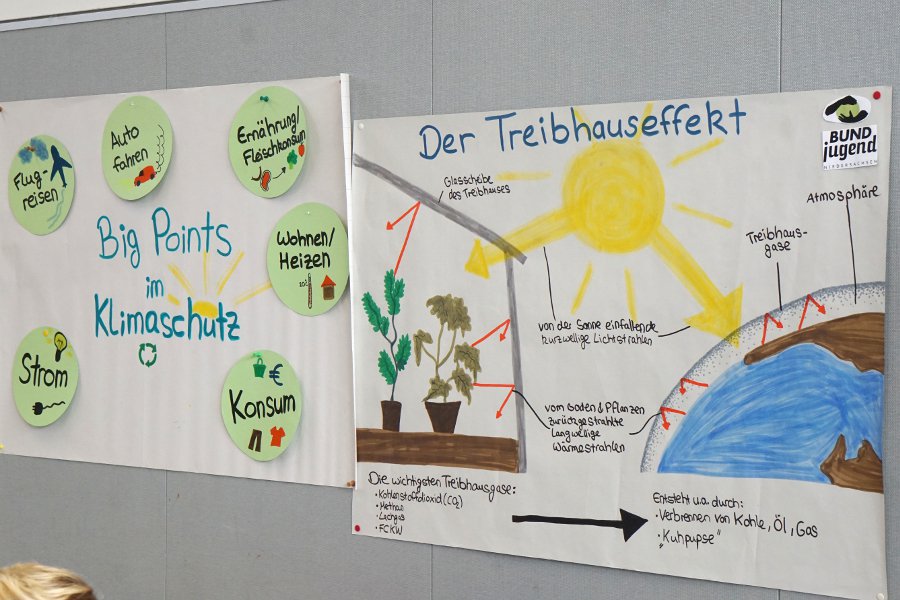 Flug-
reisen
Auto
fahren
Ernährung/
Fleischkonsum
Big Points
im
Klimaschutz
Wohnen/
Heizen
Strom
Konsum
€
Der Treibhauseffekt
BUND
jugend
NIEDERSACHSEN
Glasscheibe
des Treibhauses
Atmosphäre
Treibhaus-
gase
von der Sonne einfallende
kurzwellige Lichtstrahlen
vom Boden & Pflanzen
zurückgestrahlte
langwellige
Wärmestrahlen
Die wichtigsten Treibhausgase:
• Kohlenstoffdioxid (CO₂)
• Methan
• Lachgas
• FCKW
Entsteht u.a. durch:
• Verbrennen von Kohle, Öl, Gas
• „Kuhpupse"